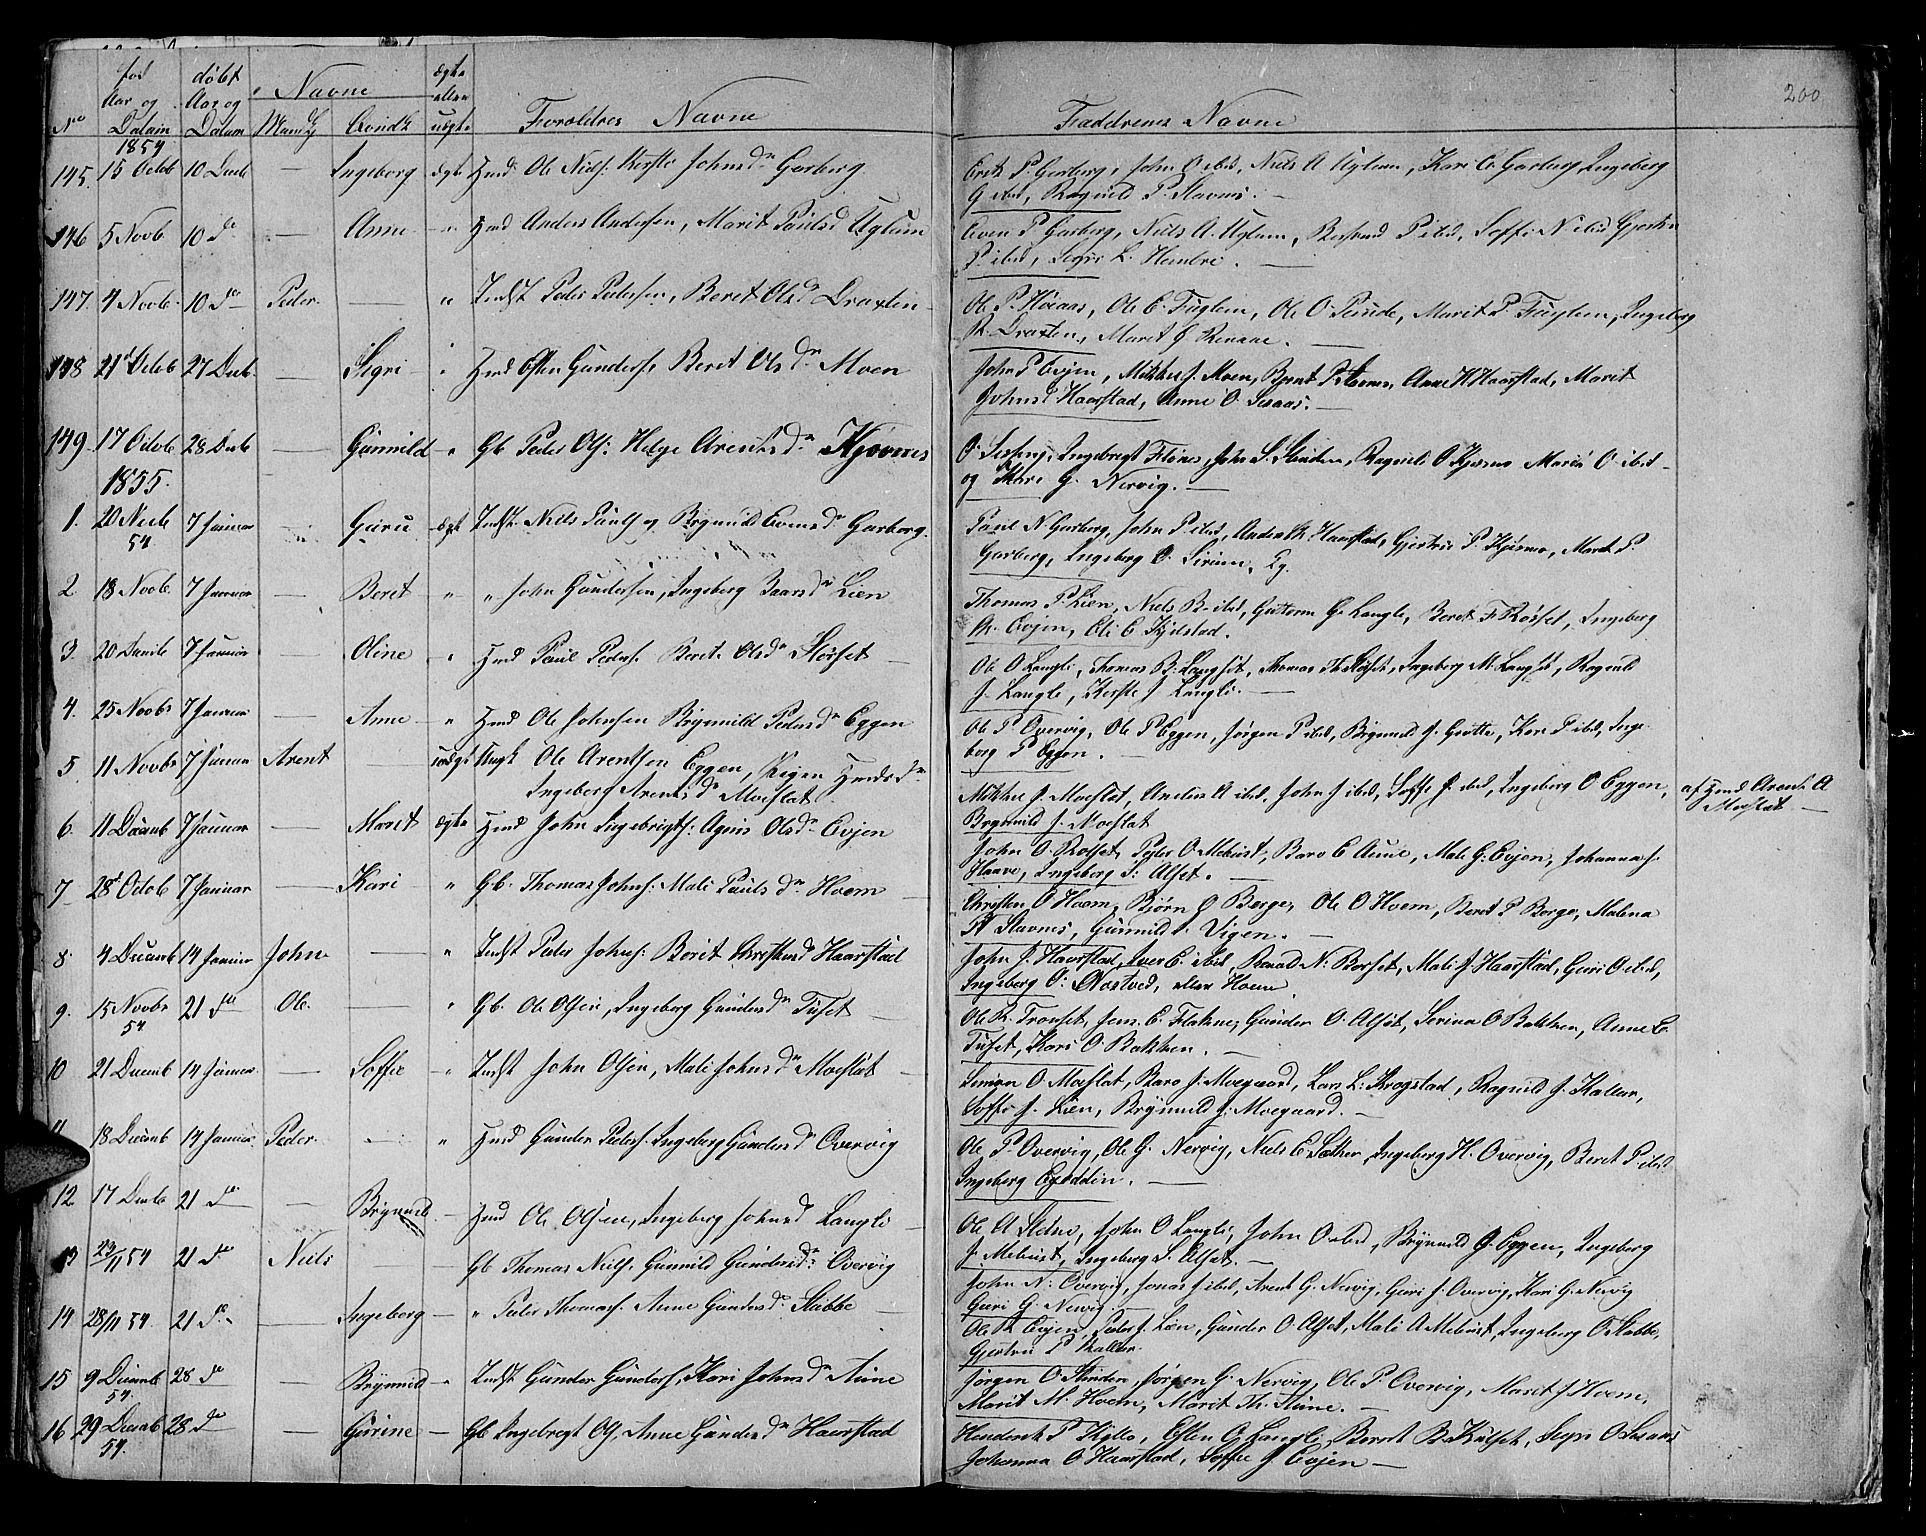 200
født Aar og Datum | døbt Aar og Datum | Navne | ægte eller uægte
No | Mandk | Qvindk | Forældres Navne | Faddrenes Navne
1854
145. 15 Octob 10 Decb — Ingeborg ægte Hmd Ole Niels: Kirsti Johnsd Garberg
Erik P. Garberg, John O ibid, Niels A Uglem, Kari O Garberg, Ingeberg
G ibid, Ragnild P. Stavnes. —
146 5 Novb 10 de — Anne " Hmd Anders Andersen, Marit Paulsd Uglum
Even P Garberg, Niels A. Uglum, P ibid, Soffi N ibid
P. ibid, Segri L. Hembre. —
147. 4 Novb. 10 de Peder — " Indst Peder Pedersen, Beret Olsd Draxten
Ole P. Høiaas, Ole E. Fuglem, Ole O. Marit P. Fuglem, Ingeberg
Draxten, Marit J Renaae. —
148 21 27 Decb. — Sigri " Hmd Esten Gunders: Beret Olsd Moen
John P Evjen, Mikkel J. Moen, Bernt P Stavnes, Anne H Haarstad, Marit
Johnsd Haarstad, Anne O Sesaas. —
149. 17 Octob 28 Decb — Gunnild " Gb Peder Ols: Helge Arentsd Kjøsnes
O. Ingebrigt Flønes, John S. Slinden, Ragnild O Kjøsnes Marit O ibid
og Mari G. Nervig. —
1855.
1. 20 54 7 Januar — Guru ægte Indst. Niels Pauls og Brynnild Evensd Garberg.
Paul N. Garberg, John P ibid, Anders Haarstad, Gjertru P. Kjøsnes, Marit P.
Garberg, Ingeberg O.
2 18 Novb. 7 Januar — Beret " " John Gundersen, Ingeberg Baarsd Lien
Thomas P. Lien, Niels B ibid, Guttorm G. Langli, Beret F Røsset, Ingeberg
Evjen, Oli E Kjelstad.
3. 20 7 Januar Oline " Hmd Paul Peders: Beret Olsd Slørset —
Ole O Langli, Thomas B. Langsæt, Thomas Th Slørset, Ingeberg M. Langsæt, Ragnild
J. Langli, Kirsti J Langli. —
4. 25 Novbr 7 Januar — Anne " Hmd Ole Johnsen Brynnild Pedersd Eggen
Ole P. Overvig, Ole P Eggen, Jørgen P ibid, Brynnild J. Grøtte, Kari P ibid, Inge-
borg P Eggen. —
5. 11 Novbr 7 Januar Arent — uægte Ungk Ole Arentsen Eggen, Pigen Hmdsd
Ingeberg Arentsd Moeslæt
Mikkel J. Moeslæt, Anders A ibid, John J ibid, Soffe J. ibid, Ingeberg O Eggen,
Brynnild J. Moeslæt
af Hmd Arent A
Moeslæt —
6. 11 Decmb 7 Januar — Marit ægte Hmd John Ingebrigts: Agnis Olsd Evjen
John O. Rolset, Peder O. Melhust, Baro E Aune, Mali G. Evjen, Johanna J.
Haave, Ingeberg S. Alset. —
7 28 Octob 7 Januar — Kari " Gb. Thomas Johns: Mali Paulsd Hoem —
Christen O Hoem, Bjørn O Berge, Ole O Hoem, Beret P Berge, Malena
P. Stavnes, Gunnild Vigen. —
8. 4 Decmb 14 Januar John — " Indst Peder Johns: Berit Christensd Haarstad
John J. Haarstad, Iver C. ibid, N. Borset, Mali J Haarstad, Guri O ibid,
Ingeberg O. eller Hoem
9. 15 Novbr 54 21 de Ole — " Gb. Ole Olsen, Ingeberg Gundersd Tuset —
Ole Tronset, Jens E. Flakne, Gunder O. Alset, Serina O Bakken, Anne E.
Tuset, Kari O Bakken. —
10 21 Decmb 14 Januar — Soffie " Indst John Olsen, Mali Johnsd Moeslæt —
Simon O Moeslæt, Baro J. Moegaard, Lars L. Krogstad, Ragnild J. Kallar,
Soffi J. Lien, Brynnild J: Moegaard. —
11 18 Decmb 14 Januar Peder — " Hmd Gunder Peders. Ingeberg Gundersd Overvig
Ole P. Overvig, Ole G. Nervig, Niels E. Sæther, Ingeberg H. Overvig, Beret P ibid
Ingeberg —
12 17 Decb 21 de — Brynnild — Hmd Ole Olsen, Ingeberg Johnsd Langli —
Ole A Stokne, John O Langli, John O ibid, Brynnild J. Eggen, Ingeberg
J. Melhust, Ingeberg S. Alset. —
13 23/11 54 21 de Niels — Gb Thomas Niels. Gunnild Gundersd Overvig
John N: Overvig, Jonas J ibid, Arent G. Nervig, Guri J. Overvig, Kari G. Nervig
Guri G. Nervig. —
14 28/11 54 21 de — Ingeborg — " Peder Thomas. Anne Gundersd Stubbe —
Ole Evjen, Peder J. Lien, Gunder O. Alset, Mali A Melhust, Ingeberg O. Stubbe,
Gjertru P. Kallar.
15 9 Decmb 54. 28 de — Brynnild " Indst Gunder Gunders, Kari Johnsd Aune
Jørgen O. Slinden, Jørgen G. Nervig, Ole P. Overvig, Marit J Hoem,
Marit M. Hoem, Marit Th. Aune. —
16 29 Decmb 54. 28 de — Gurine — Gb Ingebregt Ols, Anne Gundersd Haarstad
Henderik P Kyllo, Esten G. Langli, Beret B Kulset, Segri O Sesaas
Johanna O Haarstad, Soffie J Evjen —